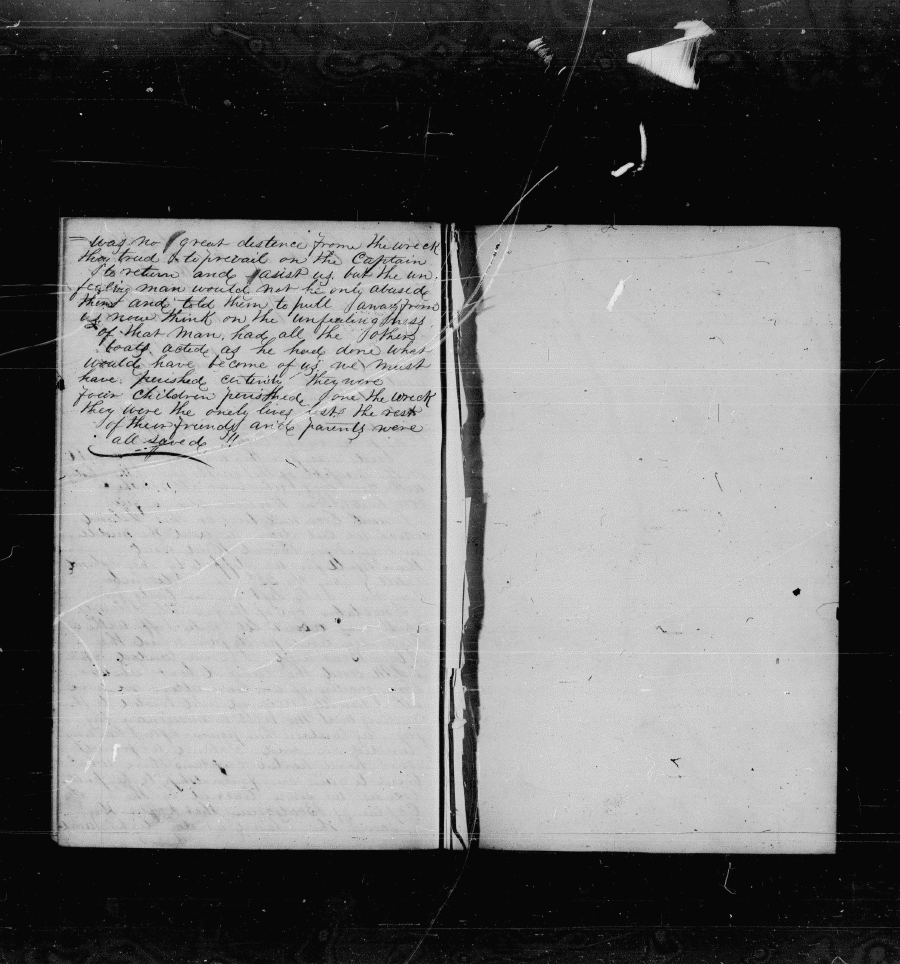 was no great distence from the wreck
thay tried to prevail on the Captain
to return and asist us, but the un,
feeling man would not he only abused
them and told them to pull away from
us, now think on the unfeelingness
of that man, had all the other
boats acted as he had done what
would have become of us we must
have perished certinly they were
four children perished one the wreck
they were the onely lives lost the rest
of their friends and parents were
all saved !!